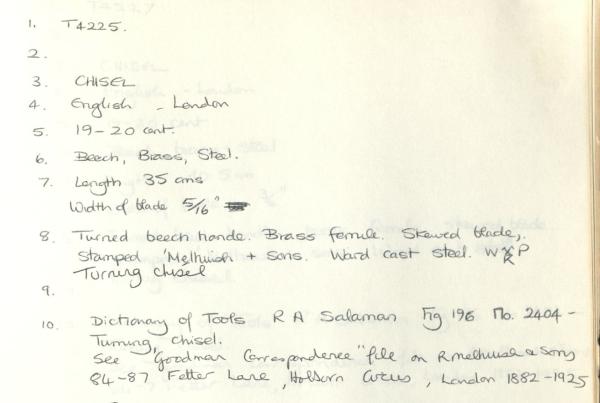 1. T4225.
2.
3. CHISEL
4. English - London
5. 19-20 cent.
6. Beech, Brass, Steel.
7. Length 35 cms
Width of blade 5/16"
8. Turned beech hande. Brass ferrule. Skewed blade,.
Stamped 'Melhuish + sons. Ward cast steel. W P
Turning chisel
9.
10. Dictionary of Tools R A Salaman Fig 196 No. 2404 -
Turning, chisel.
See "Goodman Correspondence" file on R melhuish & Sons
84-87 Fetter Lane, Holborn Circus, London 1882-1925